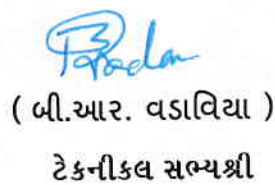 ( બી.આર. વડાવિયા )
ટેકનીકલ સભ્યશ્રી